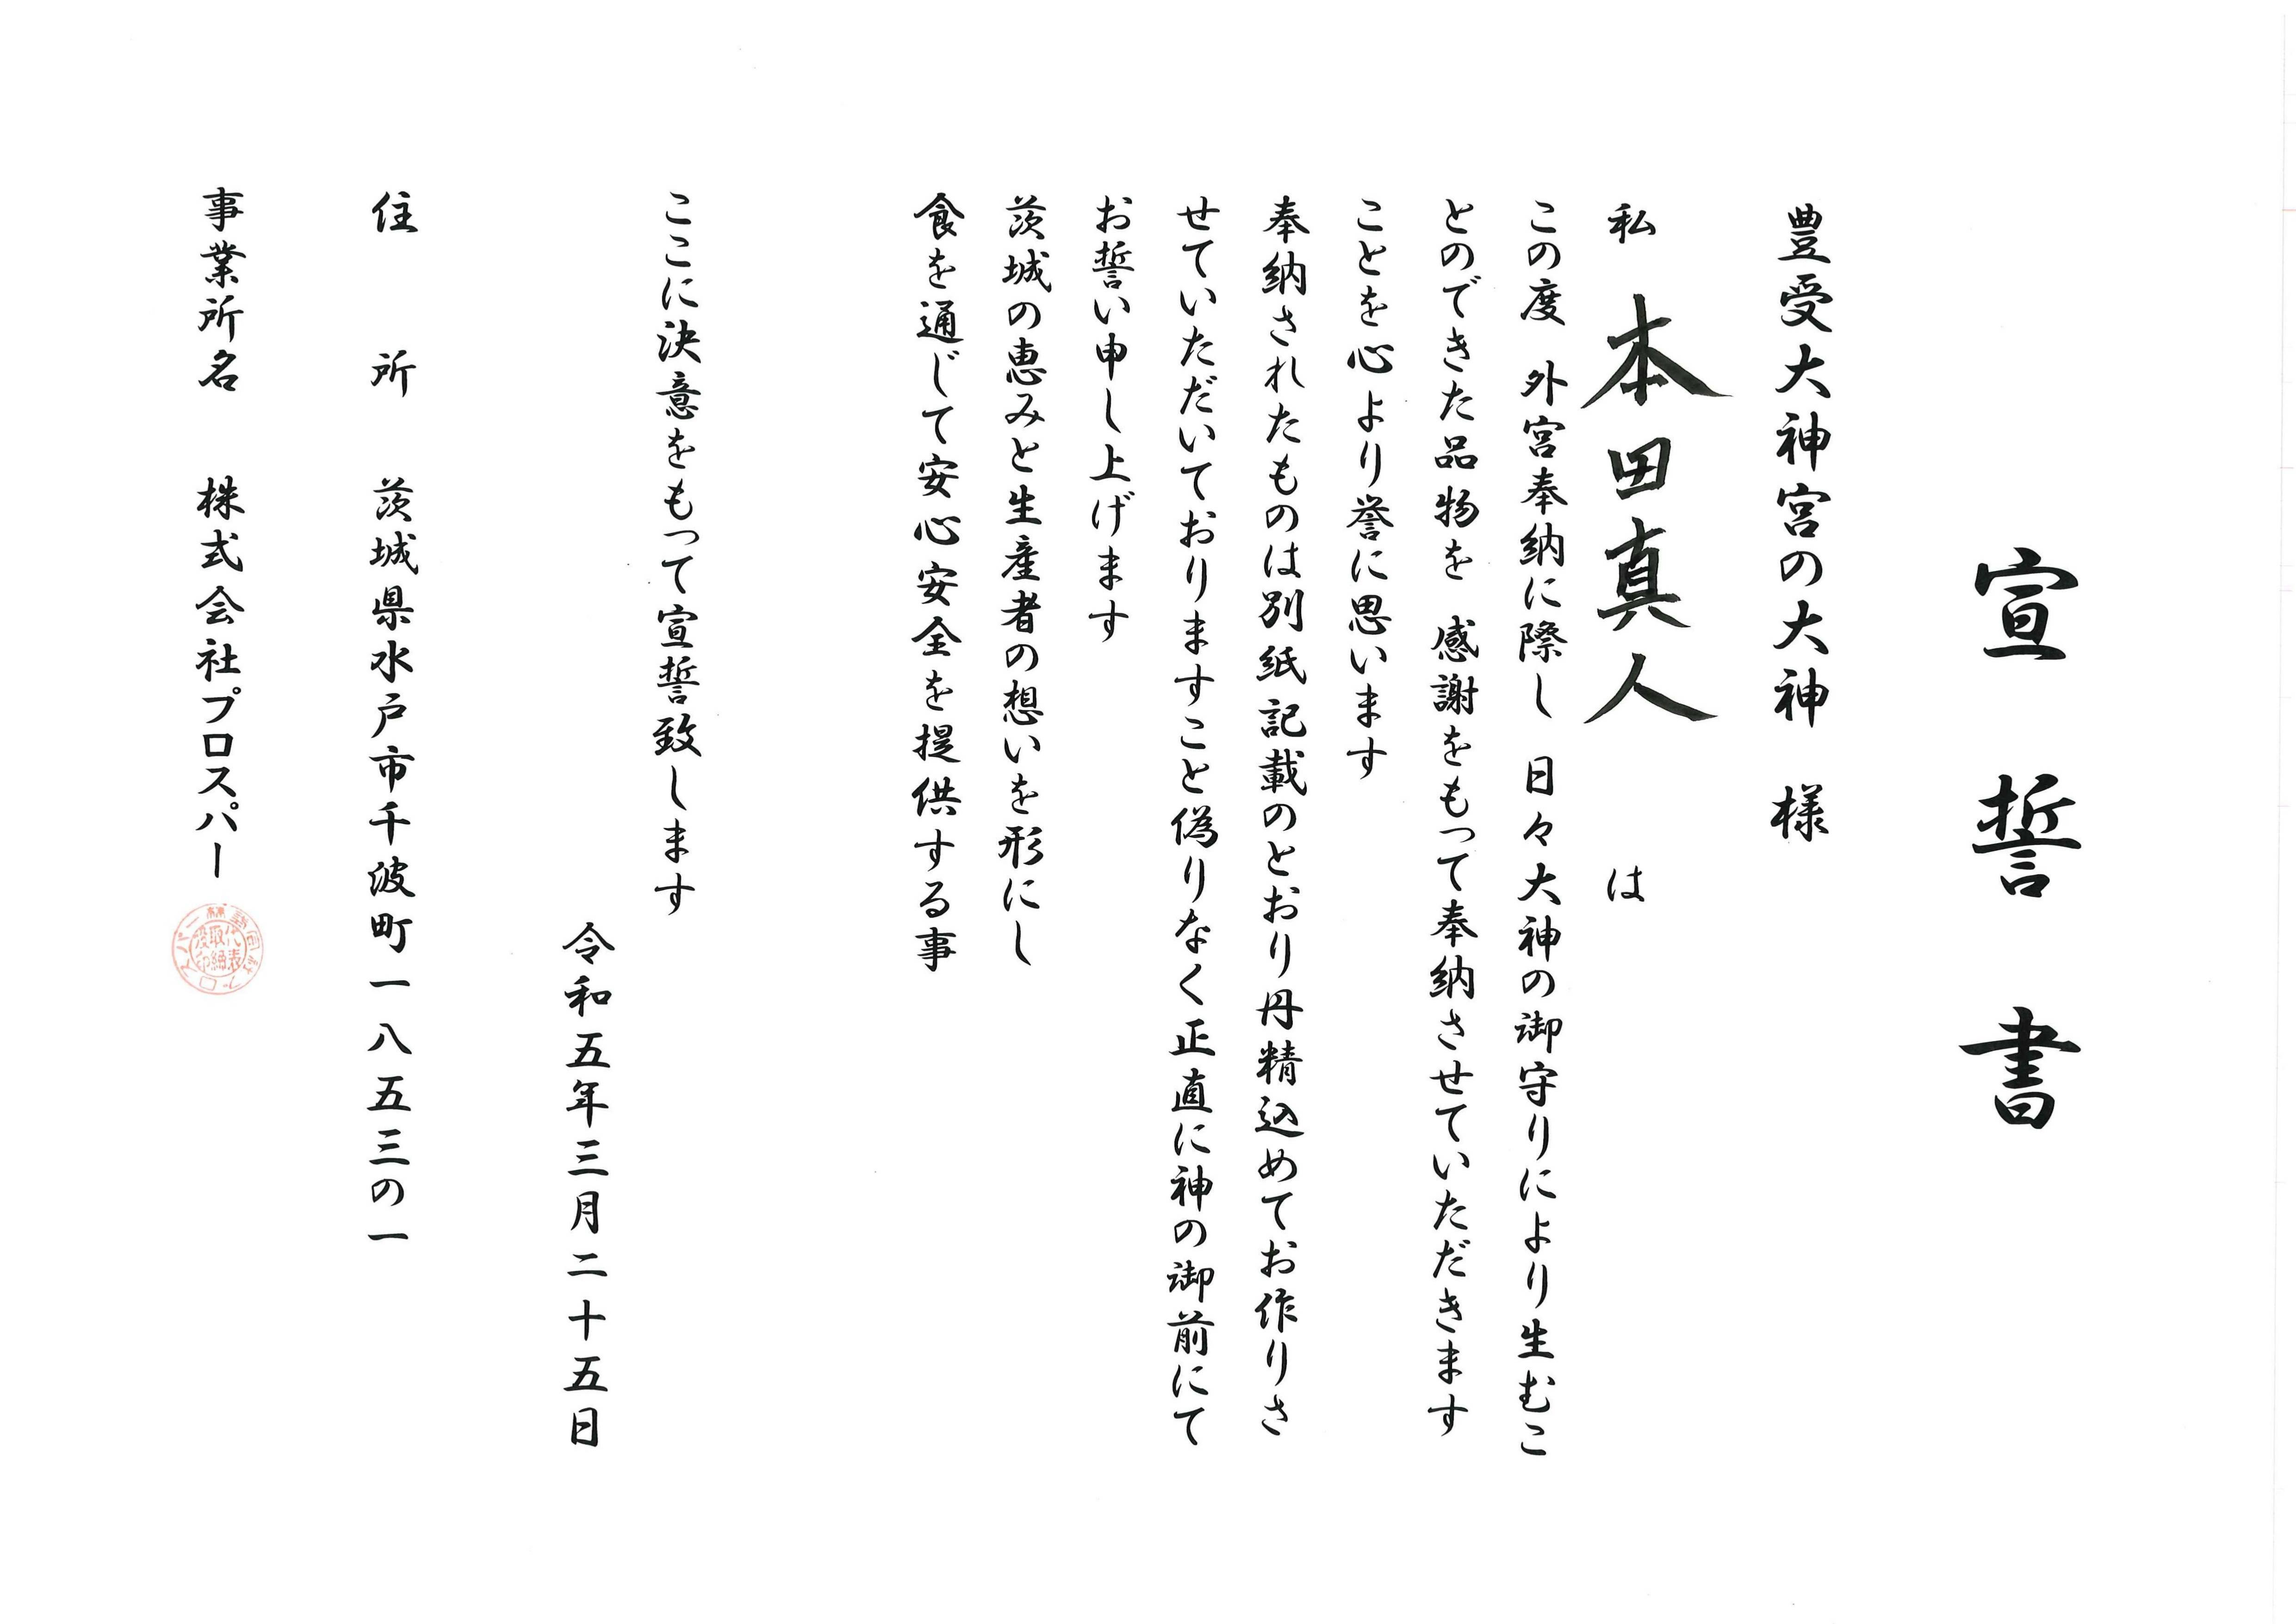 宣誓書
豊受大神宮の大神 様
私 本田真人 は
この度 外宮奉納に際し 日々大神の御守りにより生むこ
とのできた品物を 感謝をもって奉納させていただきます
ことを心より誉に思います
奉納されたものは別紙記載のとおり丹精込めてお作りさ
せていただいておりますこと偽りなく正直に神の御前にて
お誓い申し上げます
茨城の恵みと生産者の想いを形にし
食を通じて安心安全を提供する事
ここに決意をもって宣誓致します
令和五年三月二十五日
住所 茨城県水戸市千波町一八五三の一
事業所名 株式会社プロスパー
株式会社プロスパー
代表取締役印